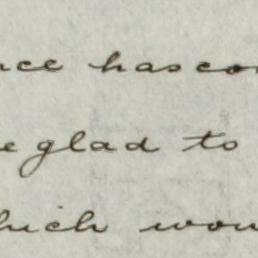 nce has con
e glad to
hich wou